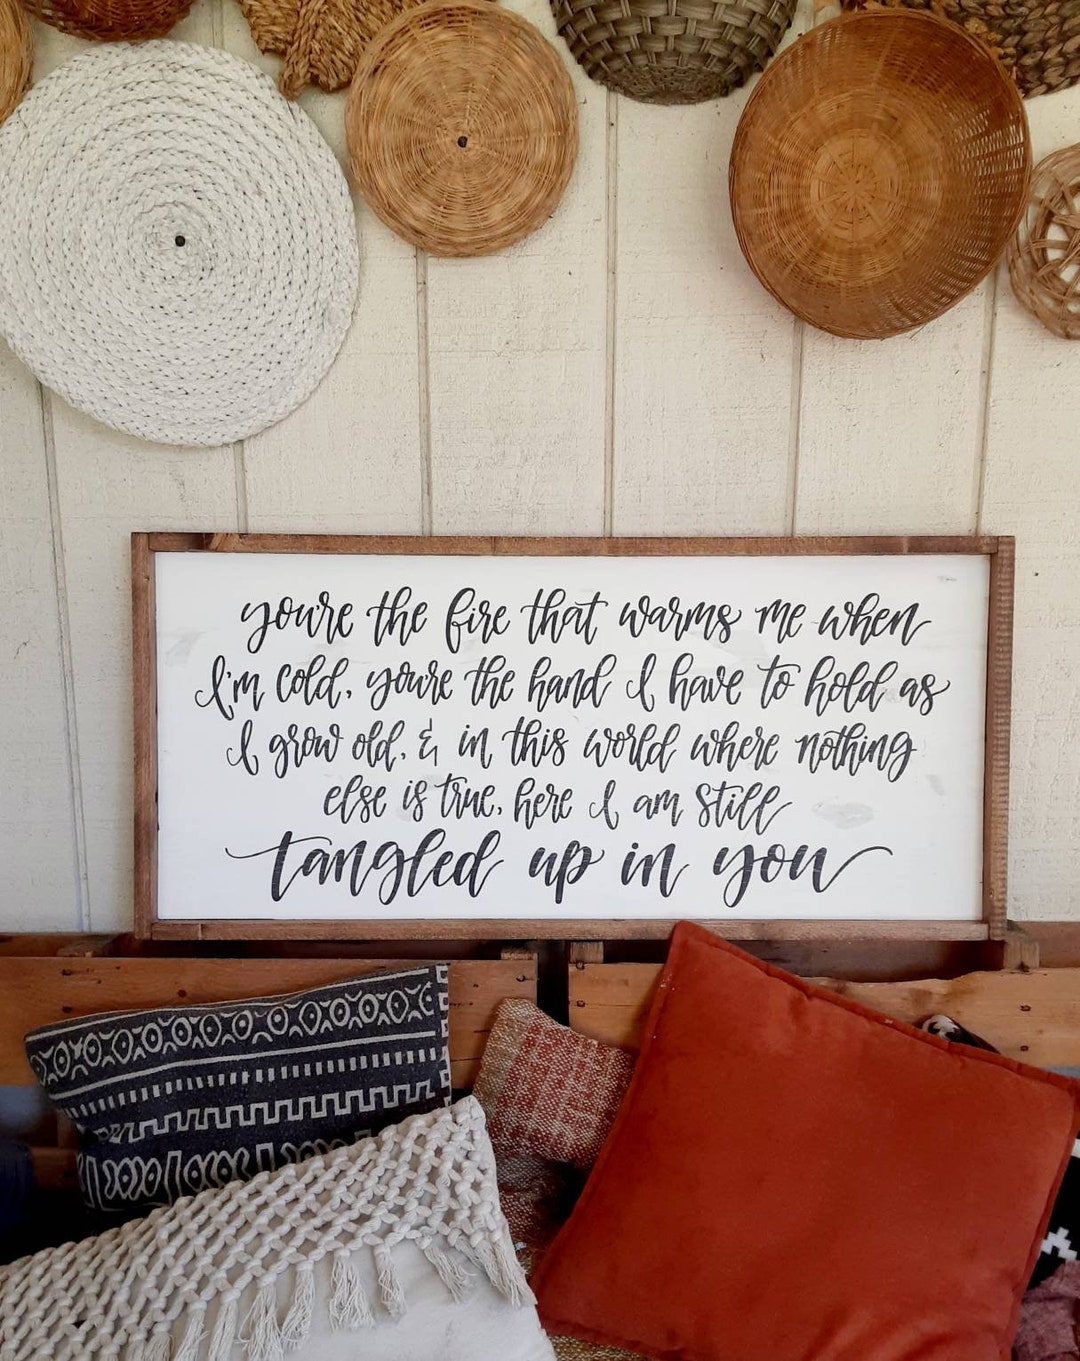 you're the fire that warms me when
I'm cold, you're the hand I have to hold as
I grow old, & in this world where nothing
else is true, here I am still
tangled up in you